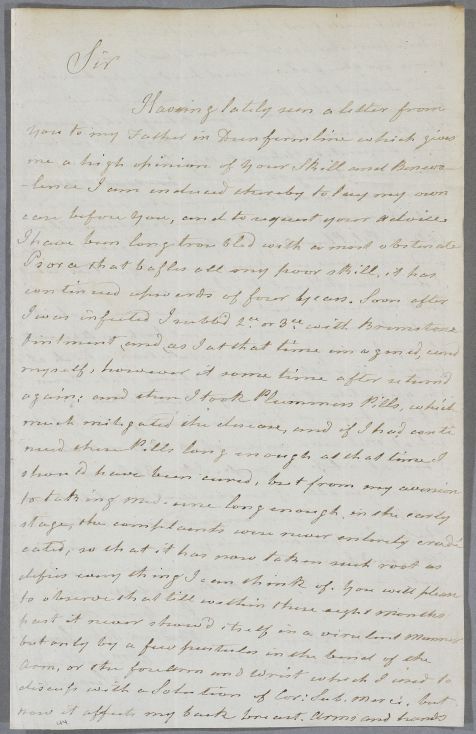 Sir
Having lately seen a letter from
you to my Father in Dunfermline which gives
me a high opinion of your Skill and Benevo-
-lence I am induced thereby to lay my own
case before you, and to request your advice
I have been long troubled with a most obstinate
Psora that baffles all my poor skill, it has
continued upwards of four years. Soon after
I was infected I rubbed 2ce or 3ce with Brimstone
Ointment, and as I at that time imagined, cured
myself, however it some time after returnd
again; and then I took Plummers Pills, which
much mitigated the disease, and if I had conti
nued these Pills long enough at that time I
should have been cured, but from my aversion
to taking medicine long enough in the early
stage, the complaints were never entirely eradi
cated, so that it has now taken such root as
defies every thing I can think of. You will please
to observe that till within these eight Months
past it never show'd itself in a virulent manner
but only by a few pustules in the bend of the
Arm, or the forearm and wrist which I used to
discuss with a Solution of Cor: Sub. Merc:, but
now it affects my back breast. Arms and hands